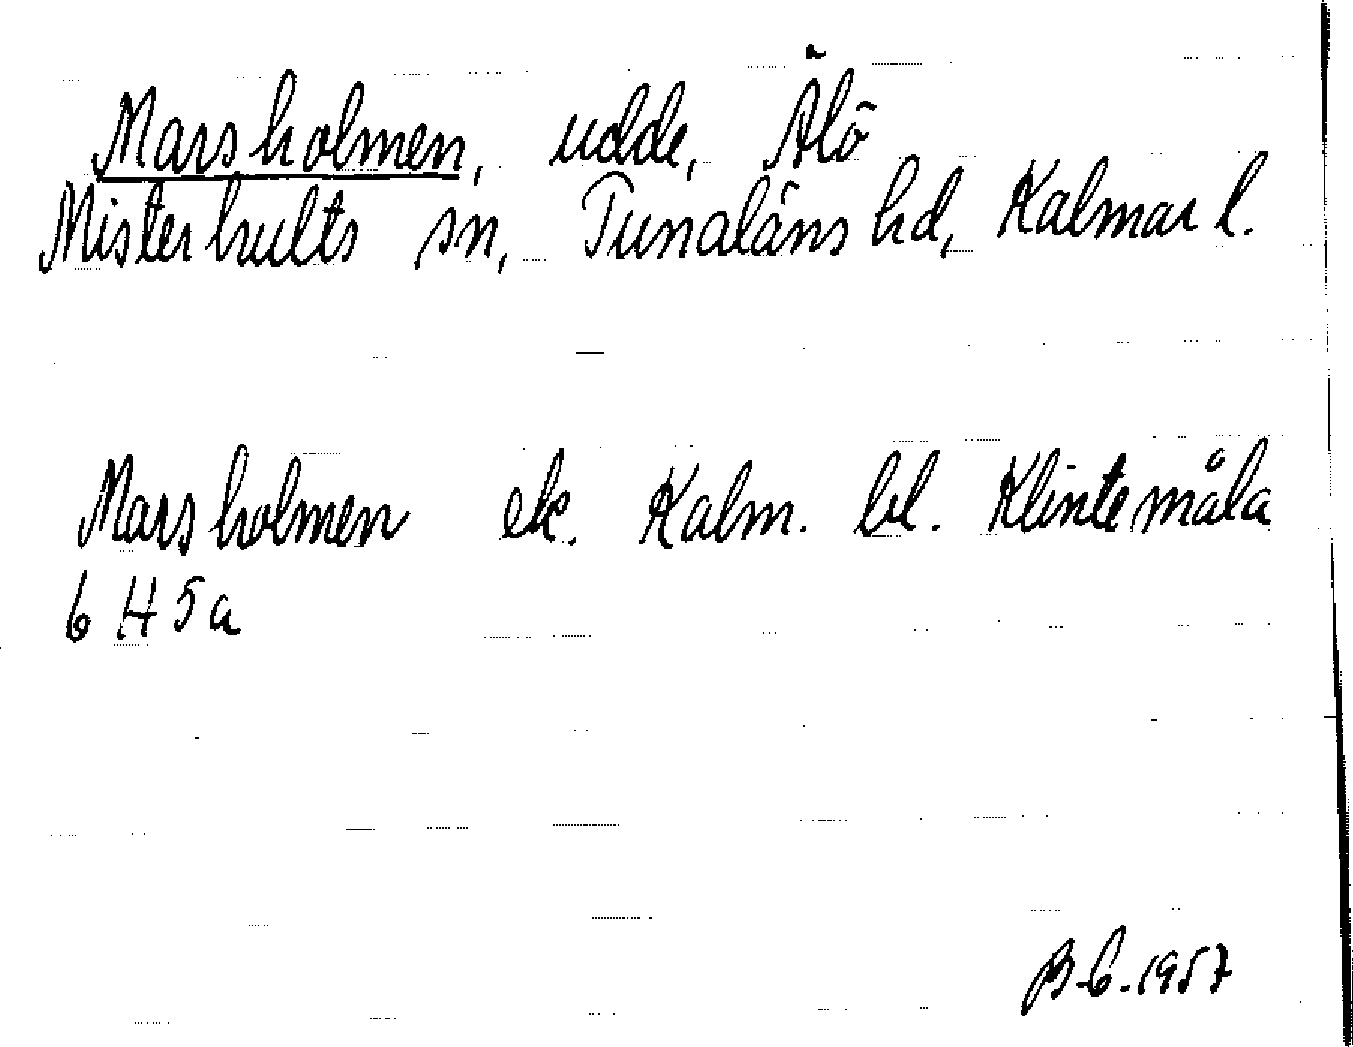 Marsholmen, udde, Älö
Misterhults sn, Tunaläns hd, Kalmar l.
Marsholmen ek. Kalm. bl. Klintemåla
6 H 5a
B.C. 1957